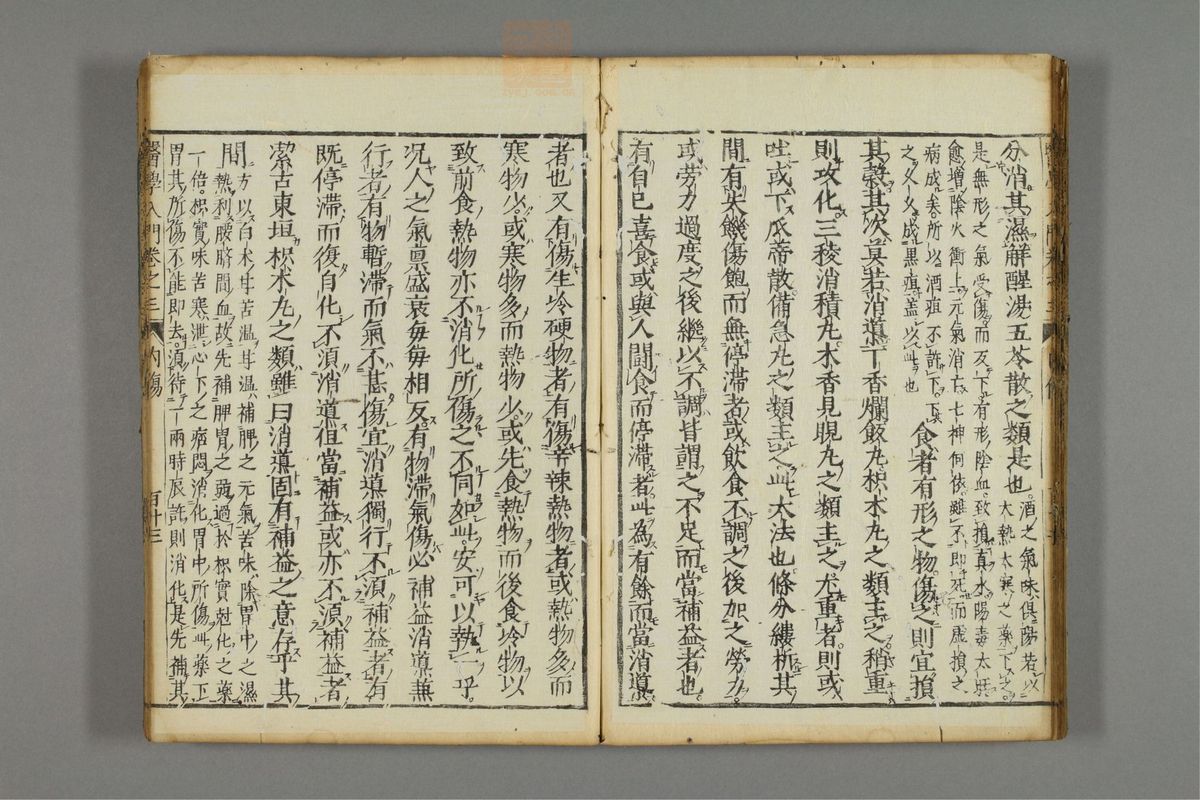 分消其濕解酲湯五苓散之類是也酒之氣味俱陽若以
大熱大寒之藥下之
是無形之氣受傷而反下有形陰血致損真水陽毒太旺
愈增陰火衝上元氣消亡七神何依雖不即死而虛損之
病成矣所以酒疸不許下下
之久久成黑疸蓋以此也
食者有形之物傷之則宜損
其穀其次莫若消導丁香爛飯丸枳朮丸之類主之稍重
則攻化三稜消積丸木香見睍丸之類主之尤重者則或
吐或下瓜蒂散備急丸之類主之此大法也條分縷析其
間有失饑傷飽而無停滯者或飲食不調之後加之勞力
或勞力過度之後繼以不調皆謂之不足而當補益者也
有自已喜食或與人鬭食而停滯者此為有餘而當消導
者也又有傷生冷硬物者有傷辛辣熱物者或熱物多而
寒物少或寒物多而熱物少或先食熱物而後食冷物以
致前食熱物亦不消化所傷之不同如此安可以執一乎
况人之氣禀盛衰每每相反有物滯氣傷必補益消導兼
行者有物暫滯而氣不甚傷宜消導獨行不須補益者有
既停滯而復自化不須消導但當補益或亦不須補益者
潔古東垣枳朮丸之類雖曰消導固有補益之意存乎其
間方以白朮甘苦溫甘溫補脾之元氣苦味除胃中之濕
熱利腰臍間血故先補脾胃之弱過於枳實尅化之藥
一倍枳實味苦寒泄心下之痞悶消化胃中所傷此藥下
胃其所傷不能即去須待一兩時辰許則消化是先補其
醫學入門卷之三 內傷 百十三